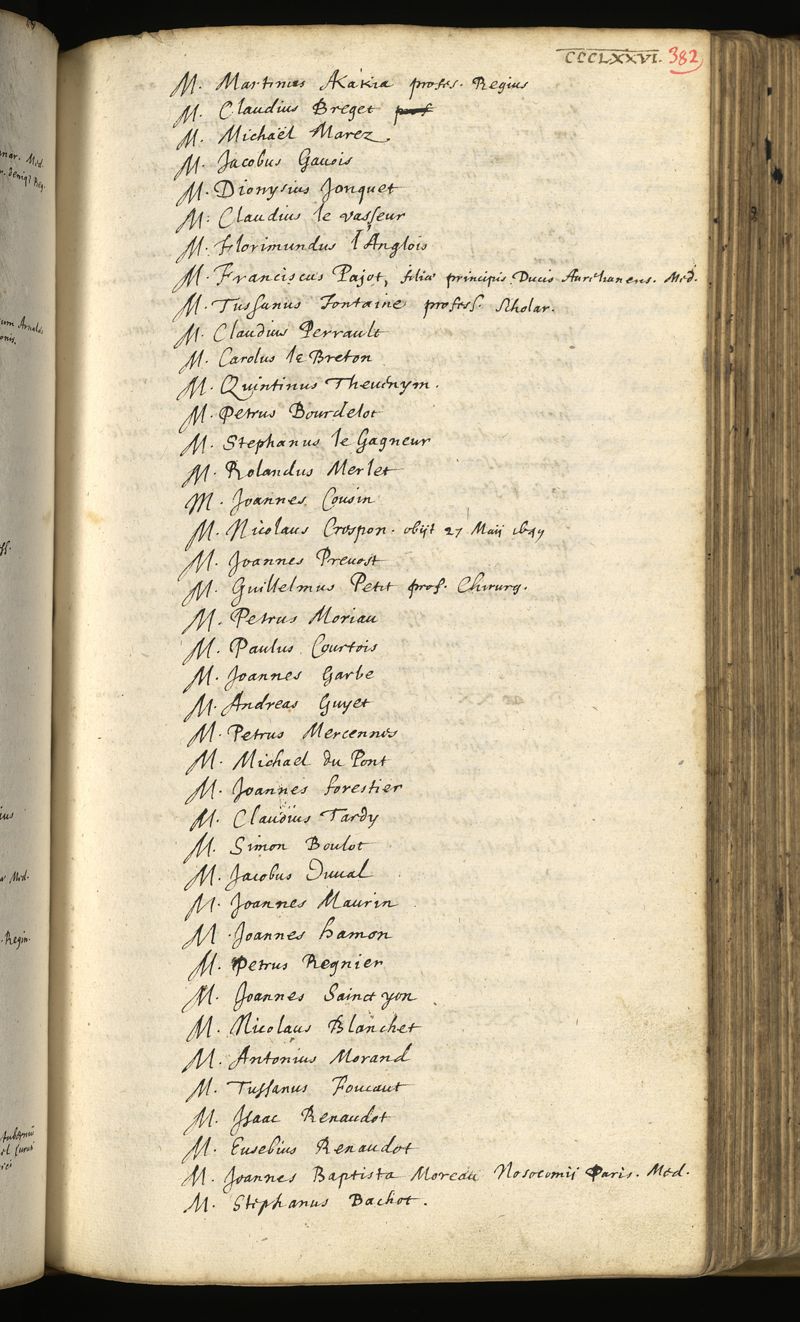 CCCLXXVI. 382
M. Martinus Akakia profes. Regius
M. Claudius Breget prof
M. Michaël Marez.
M. Jacobus Gauois
M. Dionysius Jonquet
M. Claudius le vasseur
M. Florimundus l'Anglois
M. Franciscus Pajot, filiæ principis Ducis Aurelianens. Med.
M. Tussanus Fontaine profess. Scholar.
M. Claudius Perrault
M. Carolus le Breton
M. Quintinus Theudnym.
M. Petrus Bourdelot
M. Stephanus le Gagneur
M. Rolandus Merlet
M. Joannes Cousin
M. Nicolaus Crespon. obijt 27 Maij
M. Joannes Preuost
M. Guillelmus Petit prof. Chirurg.
M. Petrus Moriau
M. Paulus Courtois
M. Joannes Garbe
M. Andreas Guyet
M. Petrus Mercennes
M. Michael du Pont
M. Joannes forestier
M. Claudius Tardy
M. Simon Boulot
M. Jacobus Duual
M. Joannes Maurin
M. Joannes hamon
M. Petrus Regnier
M. Joannes Sainct yon
M. Nicolaus Blanchet
M. Antonius Morand
M. Tussanus Foucaut
M. Isaac Renaudot
M. Eusebius Renaudot
M. Joannes Baptista Moreau Nosocomij Paris. Med.
M. Stephanus Bachot.